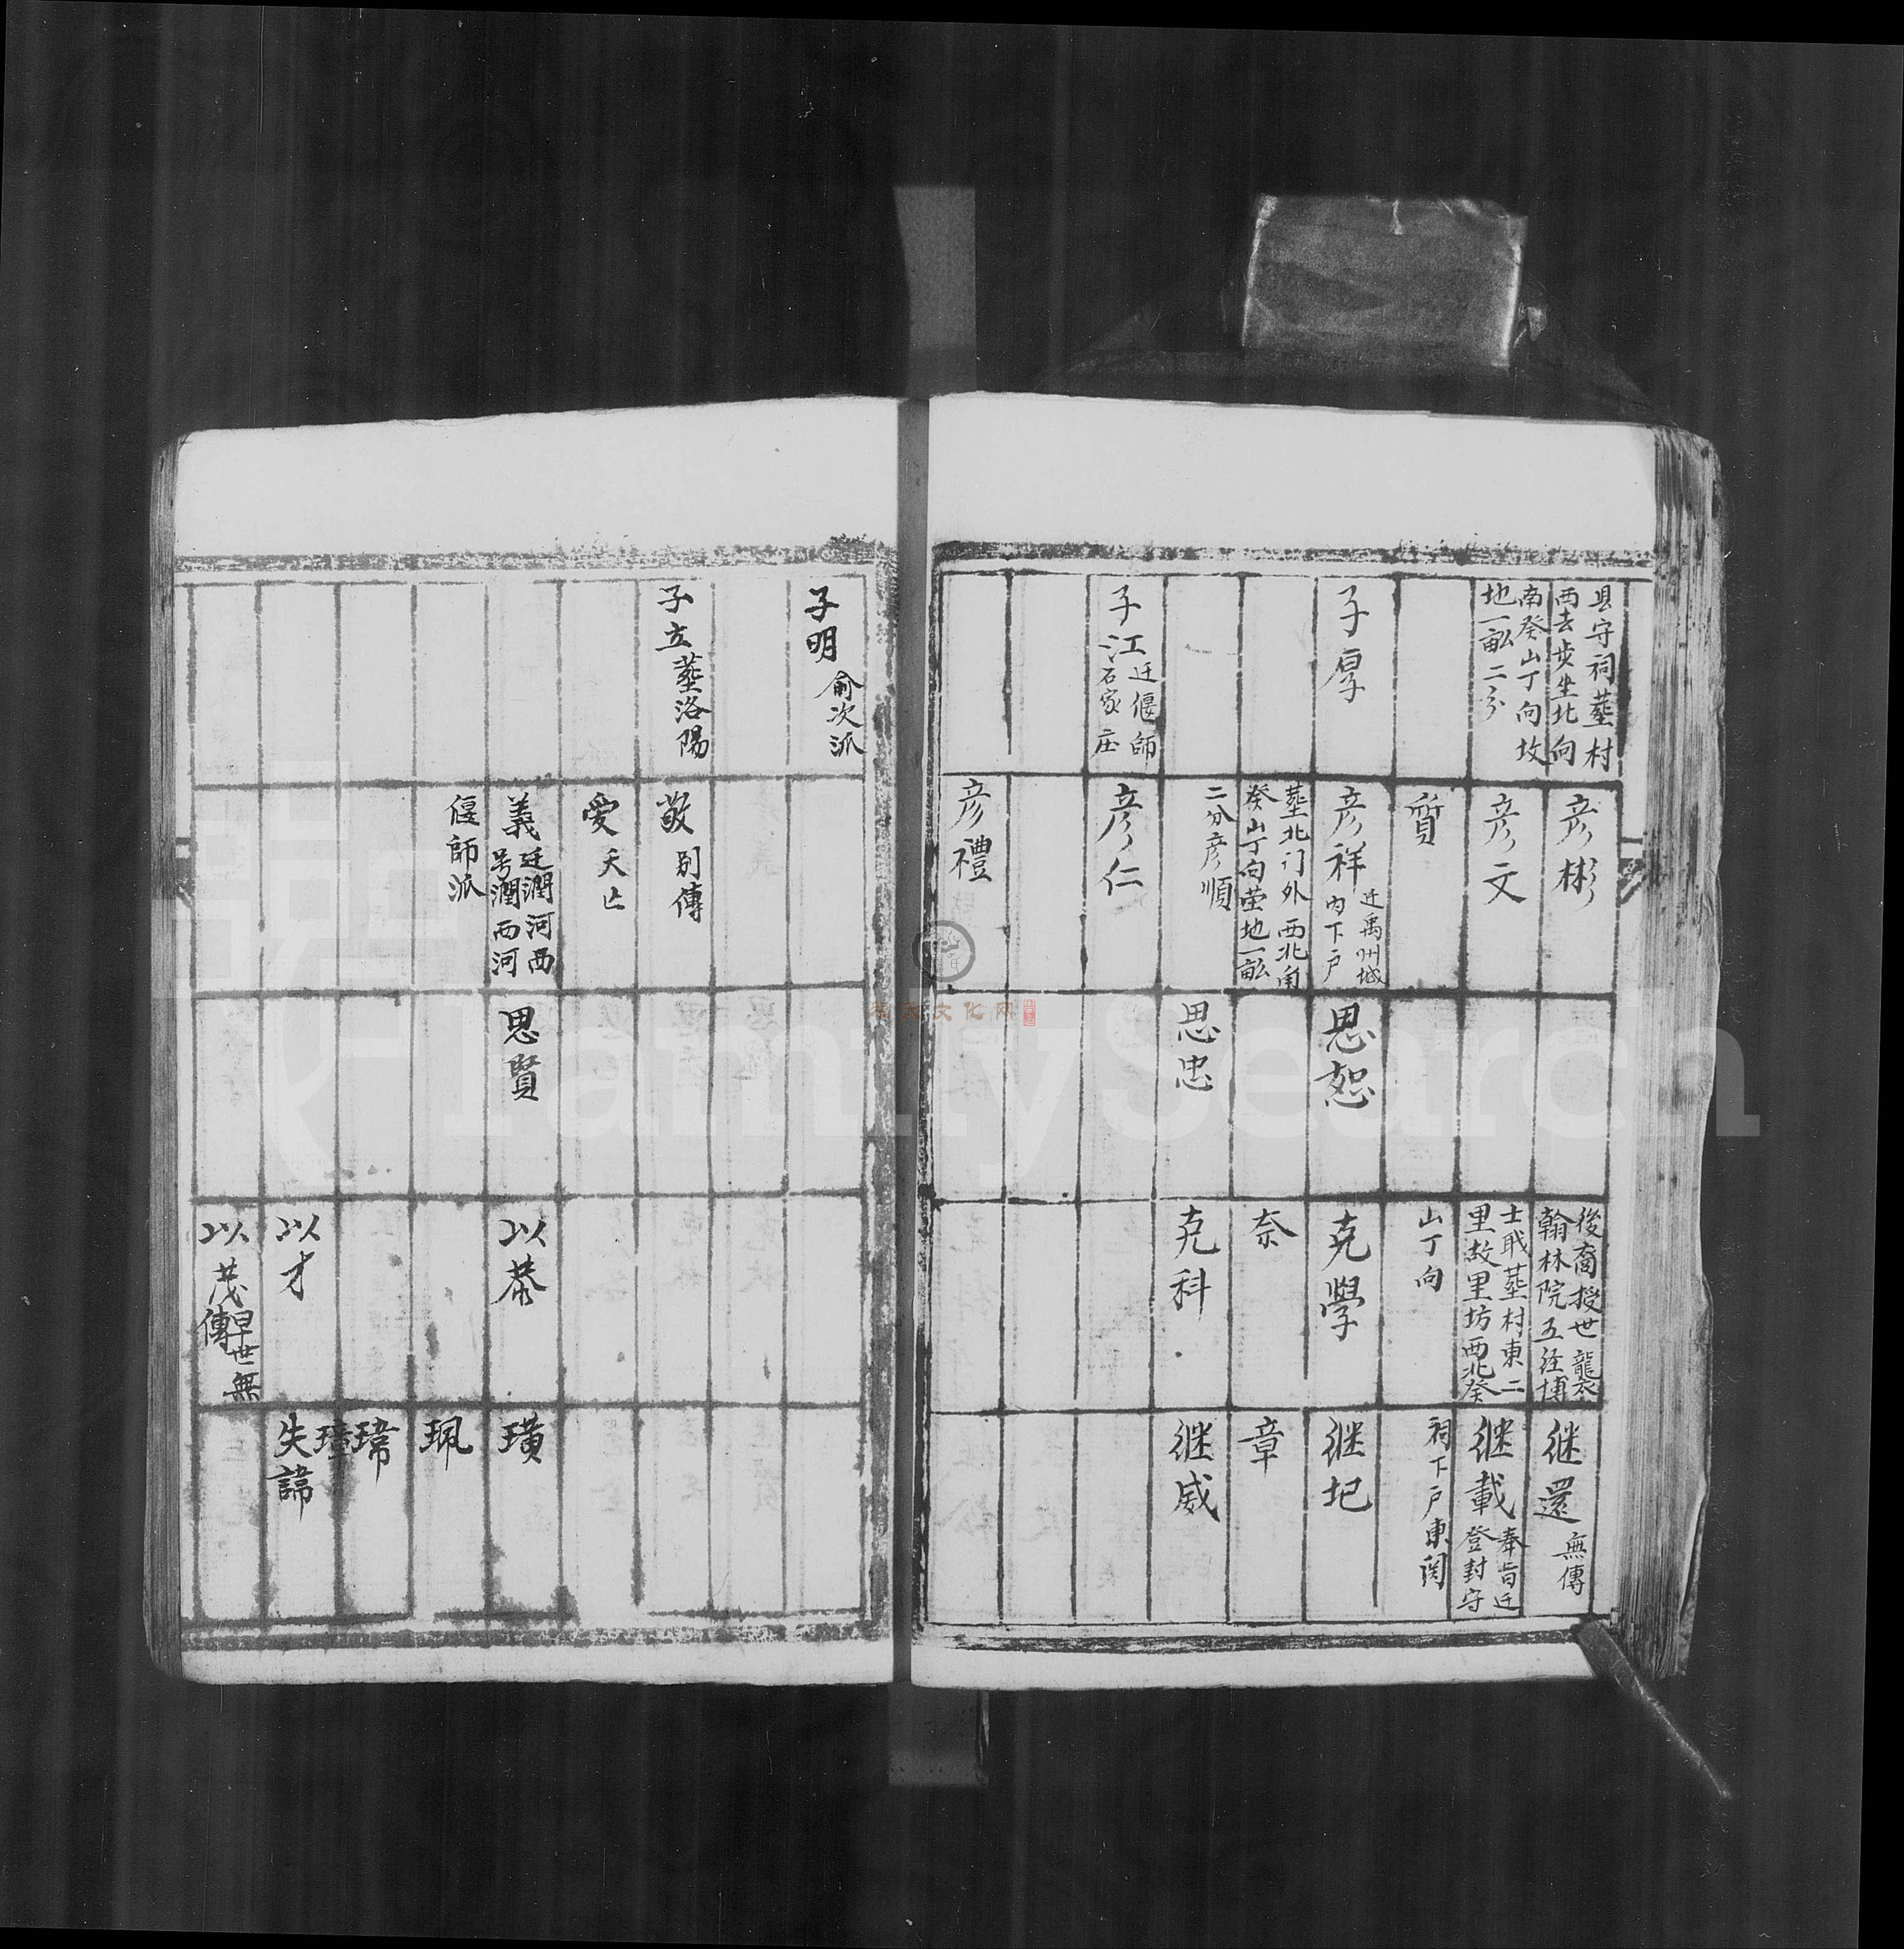 县守祠塟村
西去步坐北向
南癸山丁向坟
地一畝二分
子厚
子江
迁偃師
石家庄
彦彬
彦文
質
彦祥
迁禹州城
内下户
塟北门外西北角
癸山丁向茔地一畝
二分彦順
彦仁
彦禮
思恕
思忠
後裔授世襲
翰林院五经博
士耿塟村東二
里故里坊西北癸
山丁向
克學
奈
克科
继還
無傳
继載
奉旨迁
登封守
祠下户東関
继圯
章
继威
子明
俞次派
子立
塟洛陽
敬
别傳
愛
夭亡
義
迁潤河西
号潤西河
偃師派
思賢
以恭
以才
以茂
早世無
傳
璜
珮
瑋
璋
失諱
FamilySearch